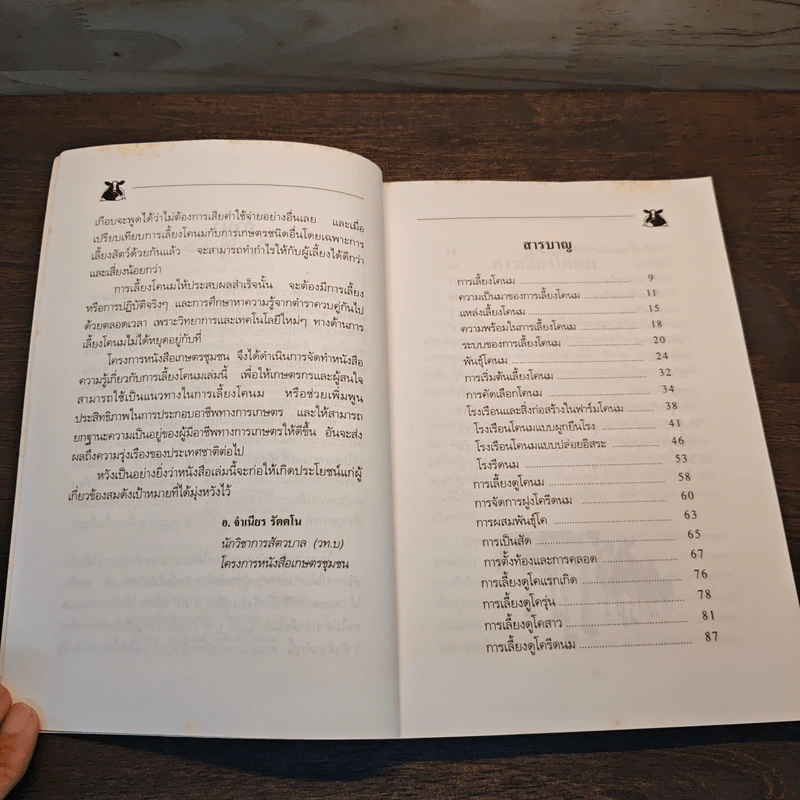 เกือบจะพูดได้ว่าไม่ต้องการเสียค่าใช้จ่ายอย่างอื่นเลย และเมื่อ
เปรียบเทียบการเลี้ยงโคนมกับการเกษตรชนิดอื่นโดยเฉพาะการ
เลี้ยงสัตว์ด้วยกันแล้ว จะสามารถทำกำไรให้กับผู้เลี้ยงได้ดีกว่า
และเสี่ยงน้อยกว่า
การเลี้ยงโคนมให้ประสบผลสำเร็จนั้น จะต้องมีการเลี้ยง
หรือการปฏิบัติจริงๆ และการศึกษาหาความรู้จากตำราควบคู่กันไป
ด้วยตลอดเวลา เพราะวิทยาการและเทคโนโลยีใหม่ๆ ทางด้านการ
เลี้ยงโคนมไม่ได้หยุดอยู่กับที่
โครงการหนังสือเกษตรชุมชน จึงได้ดำเนินการจัดทำหนังสือ
ความรู้เกี่ยวกับการเลี้ยงโคนมเล่มนี้ เพื่อให้เกษตรกรและผู้สนใจ
สามารถใช้เป็นแนวทางในการเลี้ยงโคนม หรือช่วยเพิ่มพูน
ประสิทธิภาพในการประกอบอาชีพทางการเกษตร และให้สามารถ
ยกฐานะความเป็นอยู่ของผู้มีอาชีพทางการเกษตรให้ดีขึ้น อันจะส่ง
ผลถึงความรุ่งเรืองของประเทศชาติต่อไป
หวังเป็นอย่างยิ่งว่าหนังสือเล่มนี้จะก่อให้เกิดประโยชน์แก่ผู้
เกี่ยวข้องสมดังเป้าหมายที่ได้มุ่งหวังไว้
อ. จำเนียร รัตตโน
นักวิชาการสัตวบาล (วท.บ)
โครงการหนังสือเกษตรชุมชน
สารบาญ
การเลี้ยงโคนม 9
ความเป็นมาของการเลี้ยงโคนม 11
แหล่งเลี้ยงโคนม 15
ความพร้อมในการเลี้ยงโคนม 18
ระบบของการเลี้ยงโคนม 20
พันธุ์โคนม 24
การเริ่มต้นเลี้ยงโคนม 32
การคัดเลือกโคนม 34
โรงเรือนและสิ่งก่อสร้างในฟาร์มโคนม 38
โรงเรือนโคนมแบบผูกยืนโรง 41
โรงเรือนโคนมแบบปล่อยอิสระ 46
โรงรีดนม 53
การเลี้ยงดูโคนม 58
การจัดการฝูงโครีดนม 60
การผสมพันธุ์โค 63
การเป็นสัด 65
การตั้งท้องและการคลอด 67
การเลี้ยงดูโคแรกเกิด 76
การเลี้ยงดูโครุ่น 78
การเลี้ยงดูโคสาว 81
การเลี้ยงดูโครีดนม 87